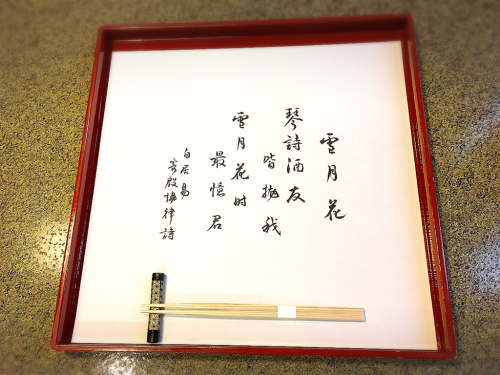 雪月花
琴詩酒友
皆抛我
雪月花时
最憶君
白居易
寄殷協律詩